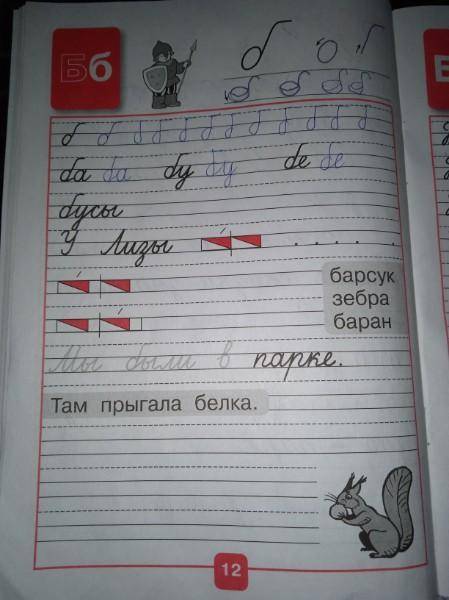 Бб
б
б б б б б б б б б б б
ба ба бу бу бе бе
бусы
У Лизы
барсук
зебра
баран
Мы были в парке.
Там прыгала белка.
12